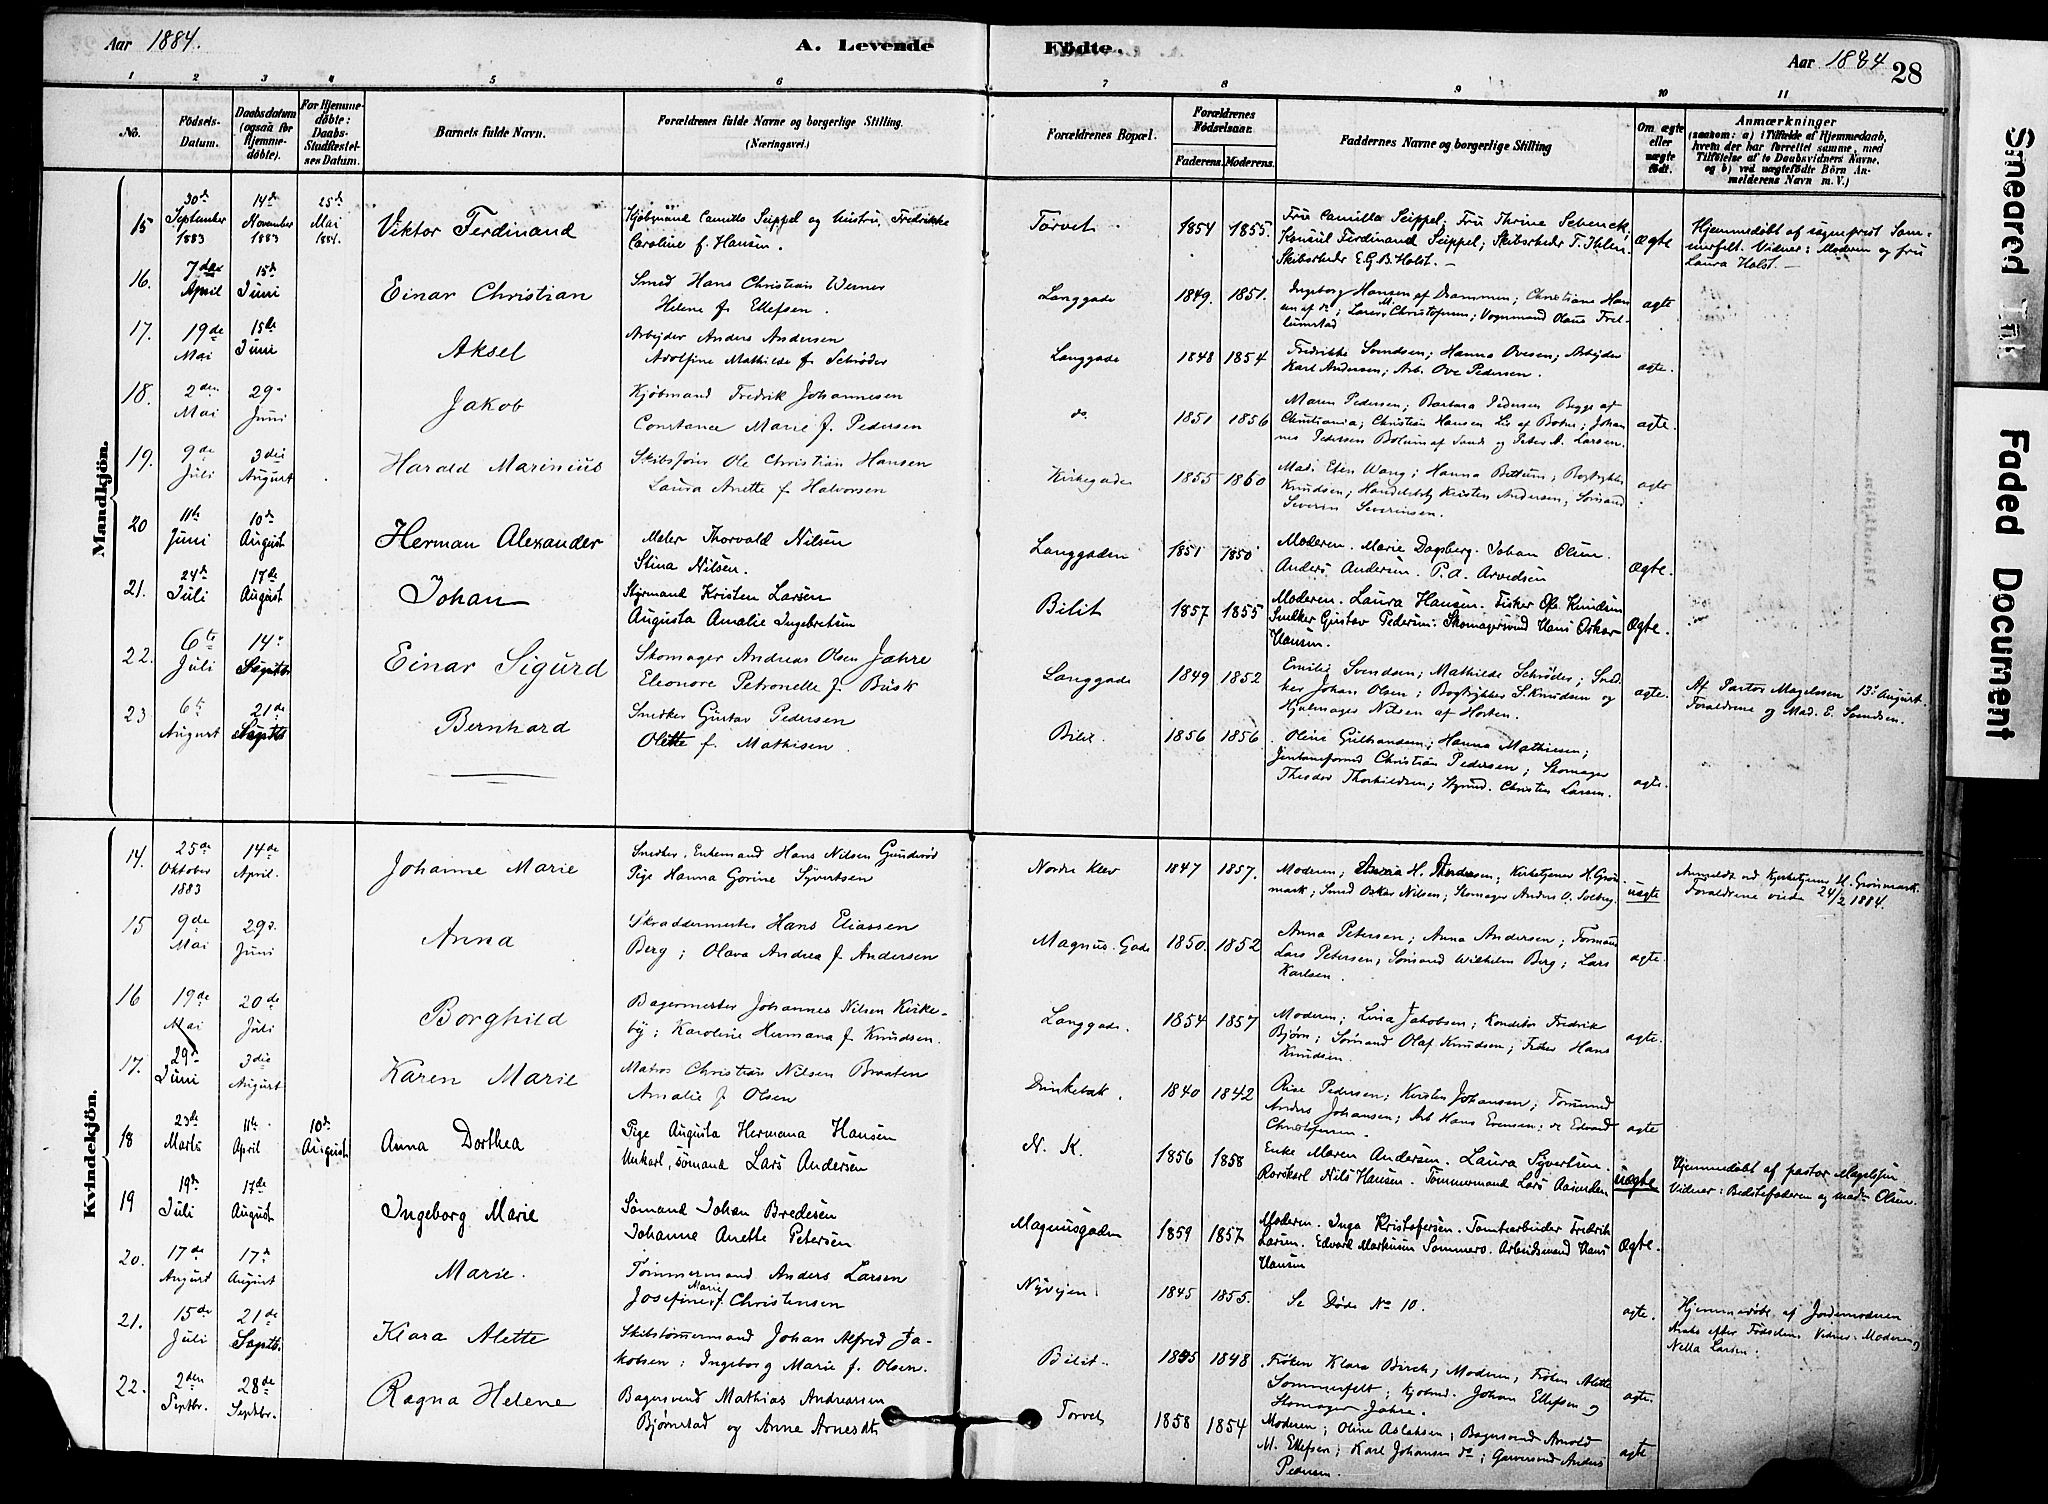 Aar 1884. A. Levende Födte. Aar 1884 28
1 2 3 4 5 6 7 8 9 10 11
No. Födsels-Datum. Daabsdatum (ogsaa for Hjemmedöbte). For Hjemmedöbte: Daabs-Stadfæstelses Datum. Barnets fulde Navn. Forældrenes fulde Navne og borgerlige Stilling. (Næringsvei.) Forældrenes Bopæl. Forældrenes Födselsaar. Faderens. Moderens. Faddernes Navne og borgerlige Stilling Om ægte eller uægte födt. Anmærkninger (saasom: a) i Tilfælde af Hjemmedaab, hvem der har forrettet samme, med Tilföielse af to Daabsvidners Navne, og b) ved uægtefödte Börn Anmelderens Navn m. V.)
Mandkjön.
15 30de September 1883 14de November 1883 25de Mai 1884. Viktor Ferdinand Kjöbmand Camillo Seippel og hustru, Fredrikke
Caroline f. Hansen. Torvet 1854 1855. Fru Camilla Seippel; Fru Thrine Schenck;
Konsul Ferdinand Seippel; Skibsrheder T. Ihlen;
Skibsrheder E.G.B. Holst. Ægte Hjemmedöbt af sogneprest Sommerfelt. Vidner: Moderen og fru
Laura Holst.
16. 7de April 15de Juni Einar Christian Smed Hans Christian Werner
Helene f. Ellefsen. Langgade 1849. 1851. Ingeborg Hansen af Drammen; Christiane Hansen af do; Lars M. Christofersen; Vognmand Olaus ægte
17. 19de Mai 15de Juni Aksel Arbejder Anders Andersen
Adolfine Mathilde f. Schröder Langgade 1848 1854 Fredrikke Svendsen; Hanna Ovesen; Arbejder
Karl Andersen; Arb. Ove Pedersen. ægte.
18. 2den Mai 29. Juni Jakob Kjöbmand Fredrik Johannesen
Constance Marie f. Pedersen do 1851 1856 Maren Pedersen; Barbara Pedersen Begge af
Christiania; Christian Hansen Lis af Botne; Johannes Pedersen af Sande og Peter A. Larsen. ægte.
19. 9de Juli 3die August Harald Marinius Skibsförer Ole Christian Hansen
Laura Anette f. Halvorsen Kirkegade 1855 1860 Wang; Hanna Bettum; Bogtrykker
Knudsen; Kristen Andersen; Sömand
Severin Severinsen. ægte
20 11te Juni 10de August Herman Alexander Maler Thorvald Nilsen
Stina Nilsen. Langgaden 1851 1850 Moderen. Marie Dagsberg. Johan Olsen.
Anders Andersen. P.A. Arvedsen Ægte.
21. 24de Juli 17de August Johan Styrmand Kristen Larsen
Augusta Amalie Ingebretsen Bilit 1857 1855 Moderen. Laura Hansen. Fisker Ole Knudsen
Snedker Gustav Pedersen. Skomagersvend Hans Oskar
Hansen. Ægte.
22. 6te Juli 14. Septbr Einar Sigurd Skomager Andreas Olsen Jahre
Eleonore Petronelle f. Busk Langgade 1849 1852 Emilie Svendsen; Mathilde Schröder; Snedker Johan Olsen; Bogtrykker S. Knudsen og
Hjulmager Nilsen af Horten. ægte. Af Pastor Magelssen 13. August.
Forældrene og Mad. E. Svendsen.
23 6te August 21de Septbr Bernhard Snedker Gustav Pedersen
Olette f. Mathisen. Bilit. 1856 1856 Oline Gulbrandsen; Hanna Mathiesen;
Christian Pedersen; Skomager
Theodor Thorkildsen; Styrmd. Christen Larsen. ægte.
Kvindekjön.
14. 25de Oktober 1883 14de April. Johanne Marie Snedker, Enkemand Hans Nilsen Gunderöd
Pige Hanna Gorine Syvertsen Nordre Klev 1847 1857. Moderen; H. Andersen; Kirketjener H. Grönmark; Smed Oskar Nilsen; Skomager Anders O. Solberg. uægte Anmeldt ved Kirketjener H. Grönmark.
Forældrene viede 24/2 1884.
15 9de Mai 29. Juni Anna Skræddermester Hans Eliassen
Berg; Olava Andrea f. Andersen Magnus. Gade 1850. 1852 Anna Petersen; Anna Andersen;
Lars Petersen; Sömand Wilhelm Berg; Lars
Karlsen. ægte.
16 19de Mai 20de Juli Borghild Bagermester Johannes Nilsen Kirkeby; Karoline Hermana f. Knudsen. Langgade. 1854 1857 Moderen; Lina Jakobsen; Konditor Fredrik
Bjørn; Sömand Olaf Knudsen; Fisker Hans
Knudsen. ægte.
17. 29de Juni 3die August Karen Marie Matros Christian Nilsen Braaten
Amalie f. Olsen 1840 1842 Pedersen; Kirsten Johansen;
Anders Johansen; Arb. Hans Evensen; do Edvard
Christofersen. ægte
18 23de Marts 11te April 10de August Anna Dorthea Pige Augusta Hermana Hansen
Unkarl, sömand Lars Andersen N. K. 1856 1858 Enke Maren Andersen. Laura Syvertsen.
Rorskarl Nils Hansen. Tømmermand Lars uægte Hjemmedöbt af pastor Magelsen
Vidner: Bedstefaderen og madm Olsen.
19 19de Juli 17de August Ingeborg Marie Sömand Johan Bredesen
Johanne Anette Petersen Magnusgaden 1859 1857 Moderen. Inga Kristofersen. Tomtearbeider Fredrik
Larsen. Edvard Markusen Sommero. Arbeidsmand Hans
Hansen Ægte.
20. 17de August 17de August Marie. Tömmermand Anders Larsen
Josefine Marie f. Christensen Nyvejen 1845 1855. Se Döde No 10. ægte. Hjemmedöbt af Jordemoderen
Straks efter Födselen. Vidner: Moderen og
Nella Larsen.
21. 15de Juli 21de Septbr. Klara Alette Skibstömmermand Johan Alfred Jakobsen; Ingeborg Marie f. Olsen. Bilit. 1848 Fröken Klara Birch; Moderen; Fröken Alette
Sommerfelt; Kjöbmd. Johan Ellefsen og
Skomager Jahre. ægte.
22. 2den Septbr. 28de Septbr. Ragna Helene Bagersvend Mathias Andreassen
Bjørnstad og Anne Arnesdt Torvet 1858 1854 Moderen; Oline Aslaksen; Bagersvend Arnold
M. Ellefsen; Karl Johansen do; Garversvend Anders
Pedersen. ægte
Smeared Ink
Faded Document